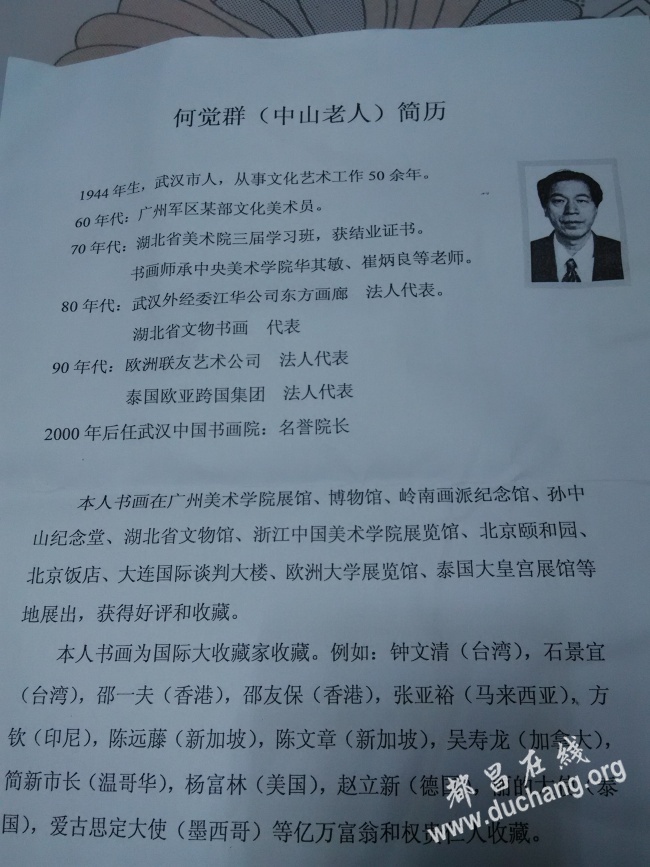 何觉群（中山老人）简历
1944年生，武汉市人，从事文化艺术工作50余年。
60年代：广州军区某部文化美术员。
70年代：湖北省美术院三届学习班，获结业证书。
书画师承中央美术学院华其敏、崔炳良等老师。
80年代：武汉外经委江华公司东方画廊 法人代表。
湖北省文物书画 代表
90年代：欧洲联友艺术公司 法人代表
泰国欧亚跨国集团 法人代表
2000年后任武汉中国书画院：名誉院长
本人书画在广州美术学院展馆、博物馆、岭南画派纪念馆、孙中
山纪念堂、湖北省文物馆、浙江中国美术学院展览馆、北京颐和园、
北京饭店、大连国际谈判大楼、欧洲大学展览馆、泰国大皇宫展馆等
地展出，获得好评和收藏。
本人书画为国际大收藏家收藏。例如：钟文清（台湾），石景宜
（台湾），邵一夫（香港），邵友保（香港），张亚裕（马来西亚），方
钦（印尼），陈远藤（新加坡），陈文章（新加坡），吴寿龙（加拿大），
简新市长（温哥华），杨富林（美国），赵立新（德国），（泰
国），爱古思定大使（墨西哥）等亿万富翁和权贵仁人收藏。
都昌在线
www.duchang.org